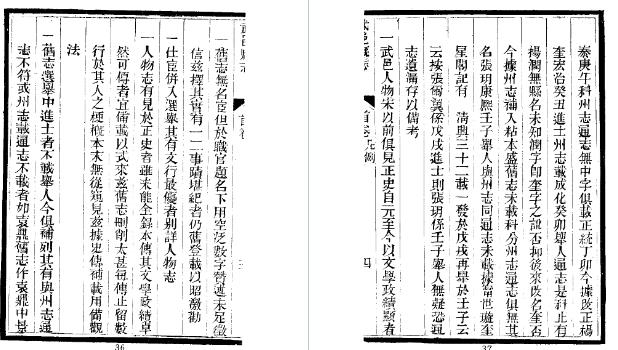 一舊志無名宦但於職官題名下用空泛數字贊述未足徵
信茲擇其實有一二事蹟堪紀者仍需登載以昭激勸
一仕宦併入選舉其有文行最優者別詳人物志
一人物志有見於正史者雖未能全錄本傳其文學政績卓
然可傳者宜備載以式來茲舊志刪削太甚每傳止留數
行於其人之梗概本末無從窺見茲據史傳補載用備觀
法
一舊志選舉中進士者不載舉人今俱補列其有與州志通
志不符或州志載通志不載者如袁鼎舊志作袁鼎中景
36
泰庚午科州志通志無中字俱載正統丁卯今據改正楊
奎宏治癸丑進士州志載成化癸卯舉人通志是科止有
楊潤無縣名未知潤字即奎字之訛否抑後來改名奎否
今據州志補入粘本盛舊志未載科分州志通志俱無其
名張玥康熙壬子舉人與州志同通志未載據世璇奎
星閣記有 清興三十二載一發於戊戌再舉於壬子云
云按張係戊戌進士則張玥係壬子舉人無疑恐通
志遺漏存以備考
一武邑人物宋以前俱見正史自元至今以文學政績顯者
武邑縣志 首卷凡例 四
37